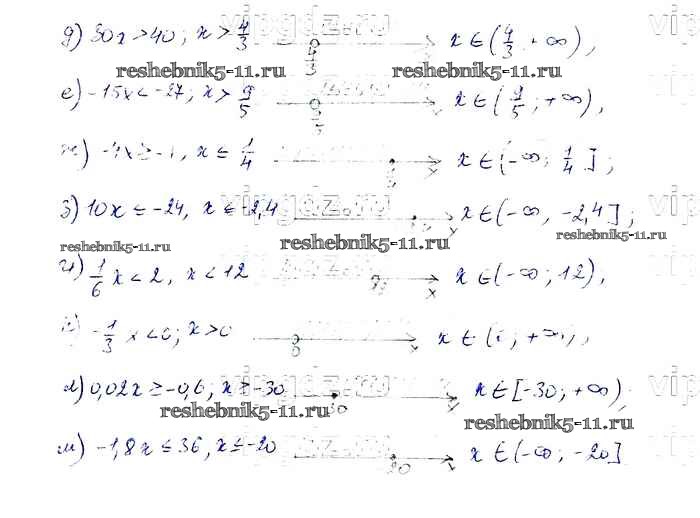 д) 30x > 40; x > 4/3 4/3 x x ∈ (4/3; +∞),
reshebnik5-11.ru reshebnik5-11.ru
е) -15x < -27; x > 9/5 9/5 x x ∈ (9/5; +∞),
ж) -4x ≥ -1, x ≤ 1/4 x x ∈ (-∞; 1/4];
vipgdz.ru
з) 10x ≤ -24, x ≤ -2,4 x x ∈ (-∞, -2,4];
reshebnik5-11.ru reshebnik5-11.ru reshebnik5-11.ru
и) 1/6 x < 2, x < 12 x x ∈ (-∞; 12),
к) -1/3 x < 0; x > 0 0 x x ∈ (0; +∞),
л) 0,02x ≥ -0,6; x ≥ -30 -30 x x ∈ [-30; +∞),
reshebnik5-11.ru reshebnik5-11.ru
м) -1,8x ≤ 36, x ≤ -20 x x ∈ (-∞; -20]